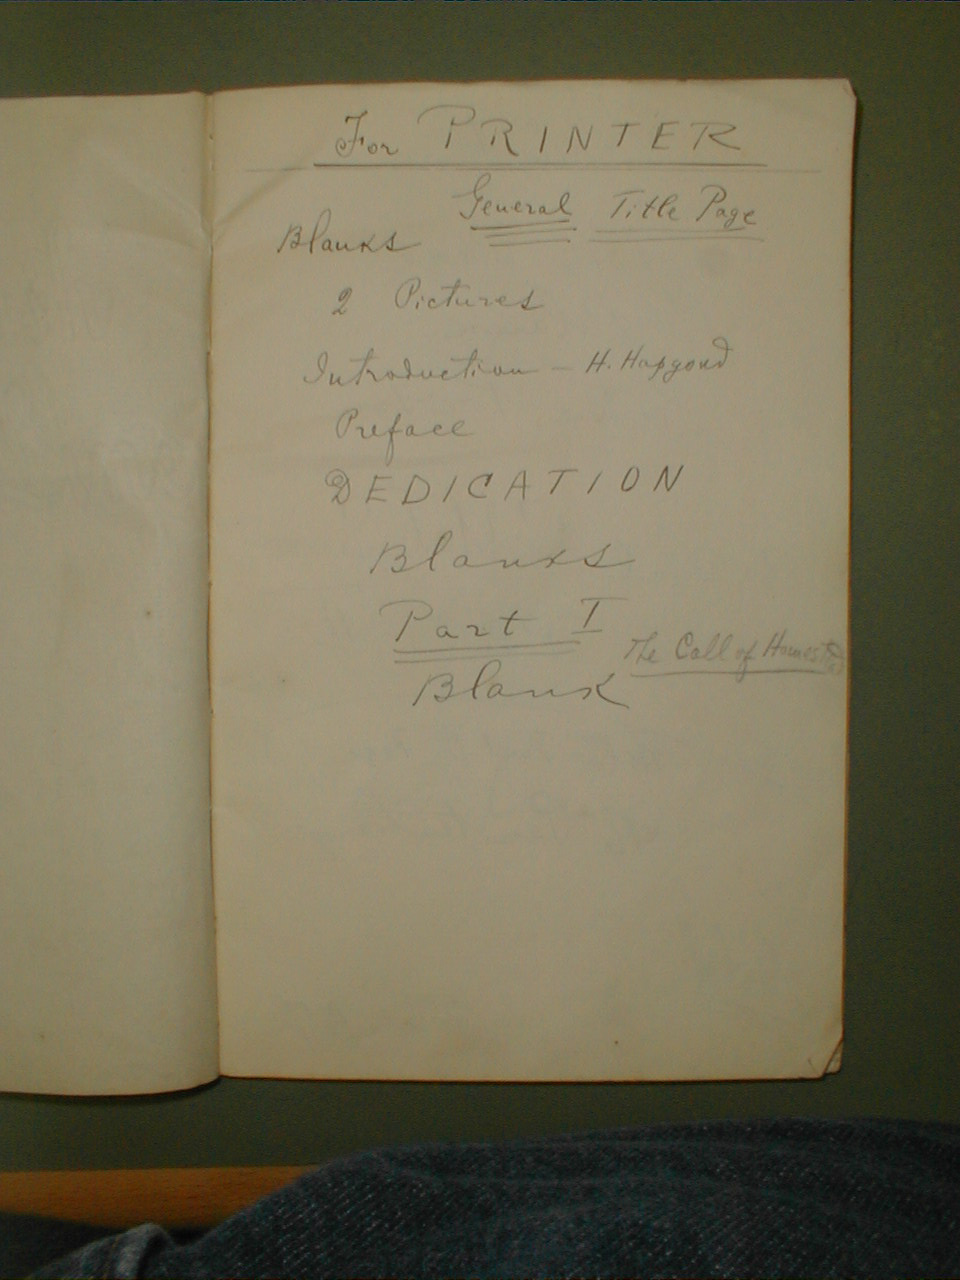 For PRINTER
General Title Page
Blanks
2 Pictures
Introduction - H. Hapgood
Preface
DEDICATION
Blanks
Part I
The Call of Homestead
Blank